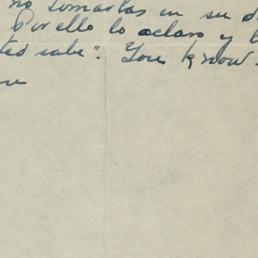 no tomarlas en su d
Por ello lo aclaro y l
ted sabe". You know.